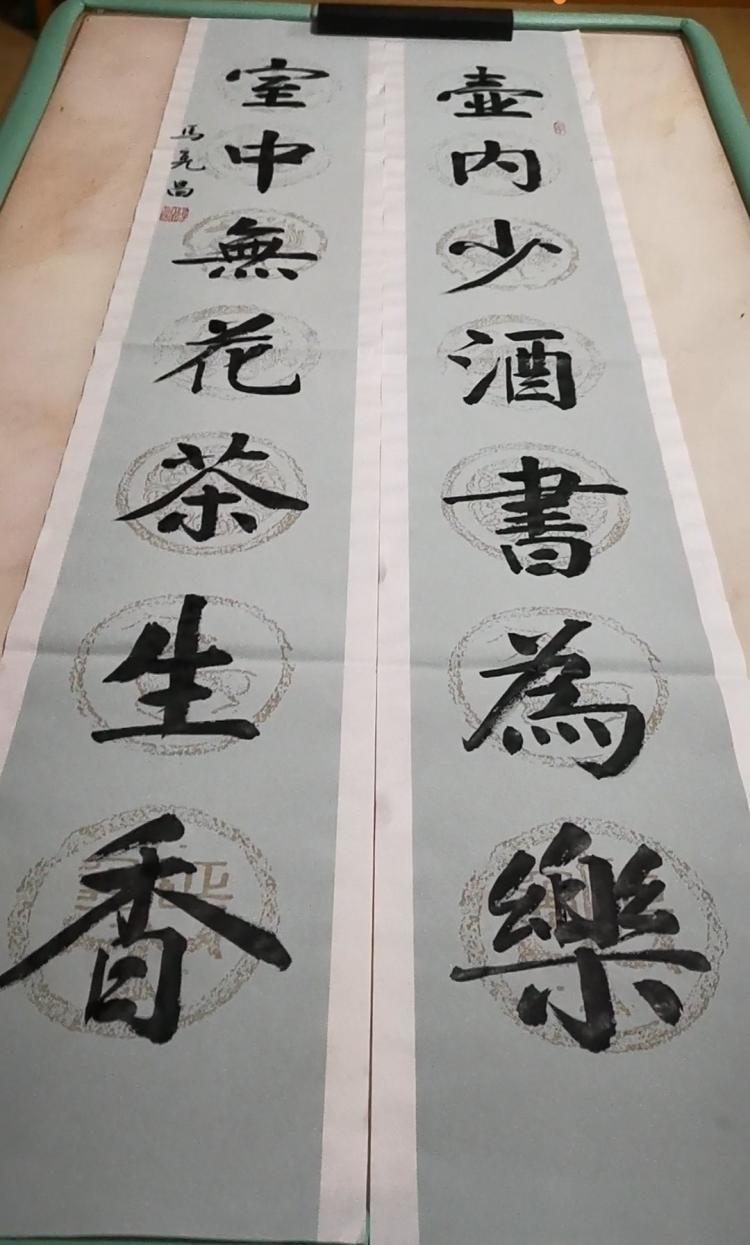 壺内少酒書為樂
室中無花茶生香
馬亮昌